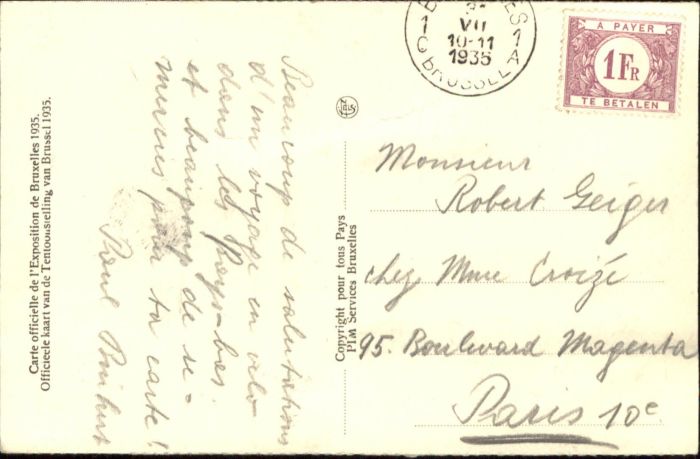 BRUSSEL
1 1
VII
10-11
1935
A PAYER
1 FR
TE BETALEN
Carte officielle de l'Exposition de Bruxelles 1935.
Officieele kaart van de Tentoonstelling van Brussel 1935.
Beaucoup de salutations
d'un voyage en vélo
dans les Pays-bas.
et beaucoup de re-
mercies pour ta carte!
Paul
Copyright pour tous Pays
PIM Services Bruxelles
Monsieur
Robert Geiger
chez Mme Croizé
95. Boulevard Magenta
Paris 10e